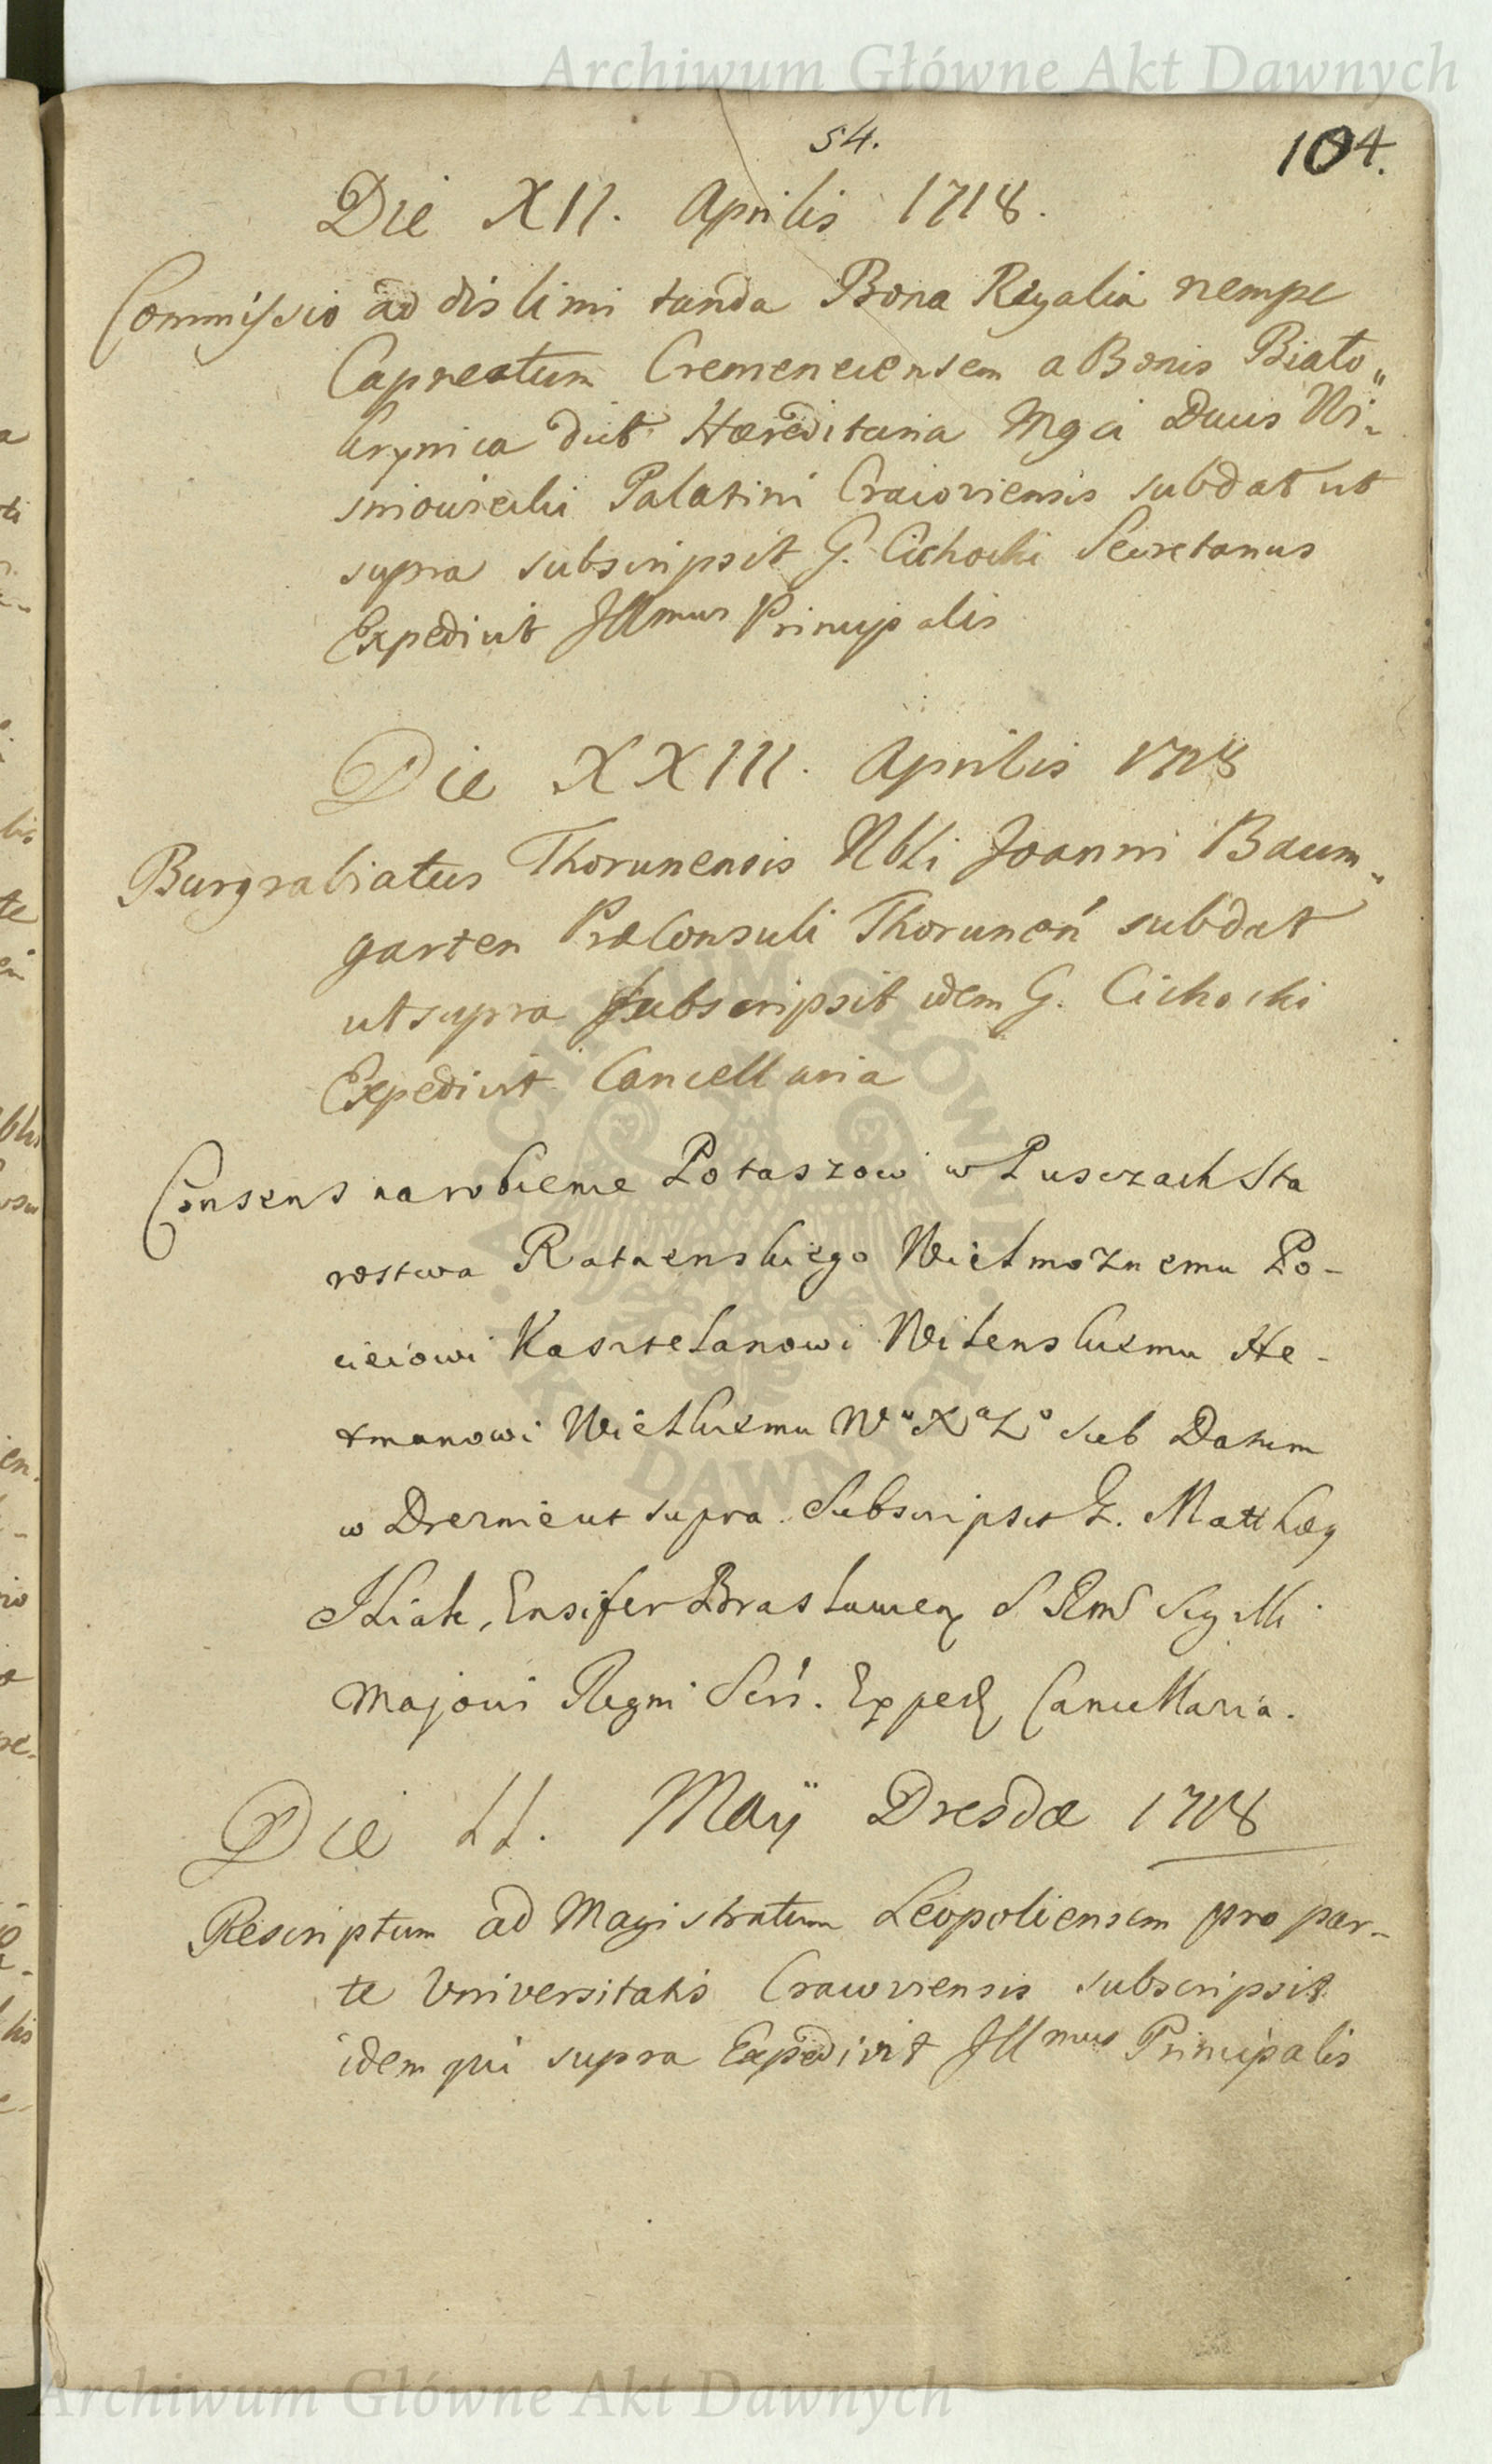 Archiwum Główne Akt Dawnych
54.
104.
Die XII. Aprilis 1718.
Commissio ad dislimi tanda Bona Regalia nempe
Capneatum Cremeneciensem a Bonis Biało„
krynica dict Hæreditaria Mgci Ducis Wi„
sniowiecki Palatini Cracoviensis subdat ut
supra subscripsit G. Cichocki Secretarius
Expedivit Illmus Principalis
Die XXIII. Aprilis 1718
Burgrabiatus Thorunensis Nbli Joanni Baum„
garten PræConsuli Thorunen subdat
ut supra subscripsit idem G. Cichocki
Expedivit Cancellaria
Consens na robienie Potaszow w Pusczach Sta
rostwa Ratnenskiego Wielmoznemu Po-
cieiowi Kasztelanowi Wilenskiemu He-
tmanowi Wielkiemu Wo Xa Lo sub Datum
w Dreznie ut supra. Subscripsit G. Matthæy
Iliak, Ensifer Braslawien S. Rmś Sigilli
Majoris Regni Scri. Exped Cancellaria.
Die 11. Maÿ Dresdæ 1718
Rescriptum ad Magistratum Leopoliensem pro par-
te Universitatis Cracoviensis subscripsit
idem qui supra Expedivit Illmus Principalis
Archiwum Główne Akt Dawnych